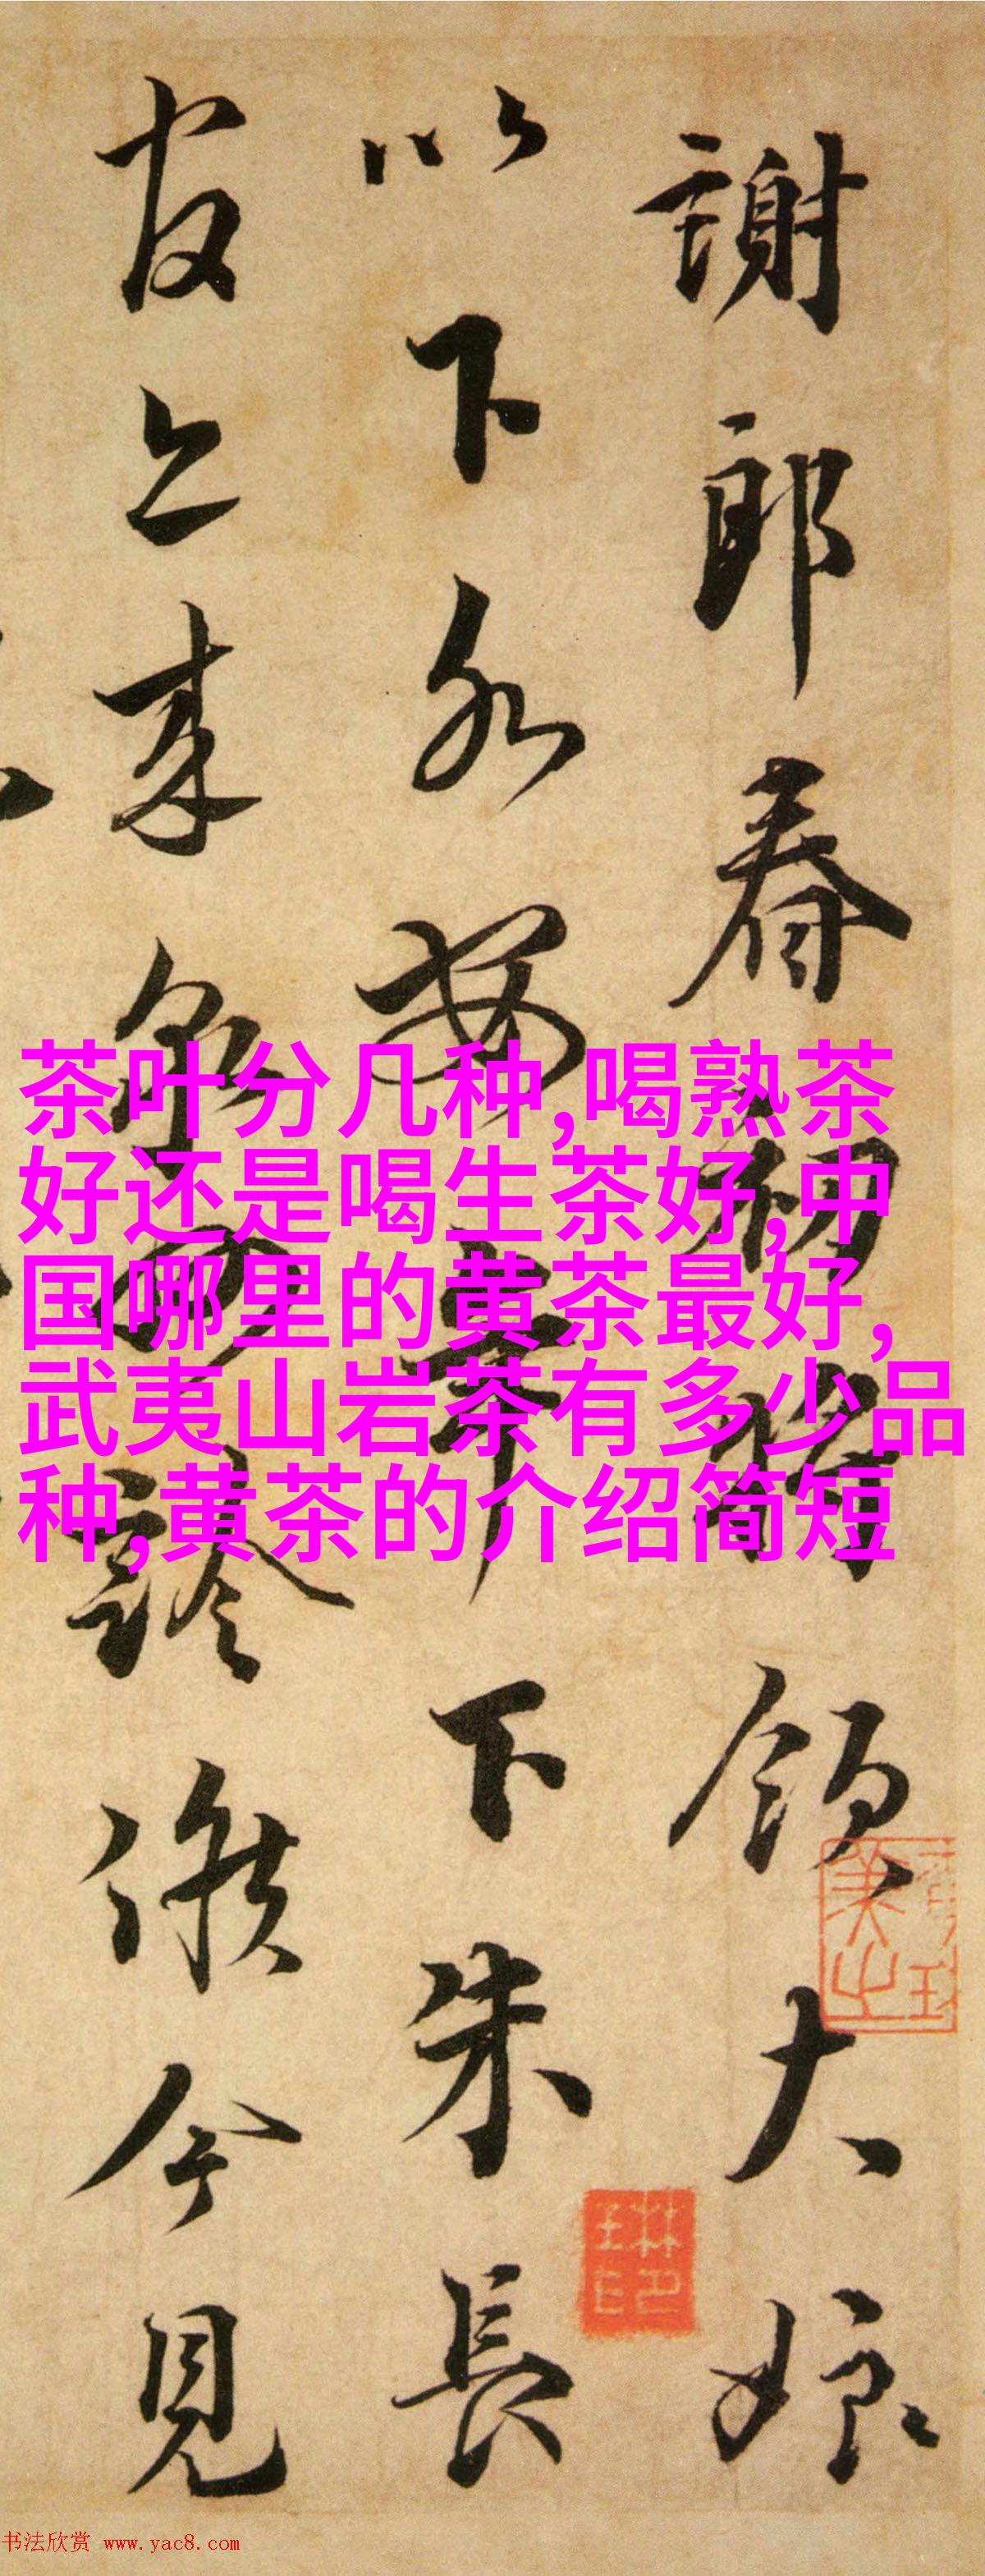 謝郎春初將領大娘
以下各安寧下朱長
官已來泉州診候今見
茶叶分几种,喝熟茶
好还是喝生茶好,中
国哪里的黄茶最好,
武夷山岩茶有多少品
种,黄茶的介绍简短
书法欣赏 www.yac8.com